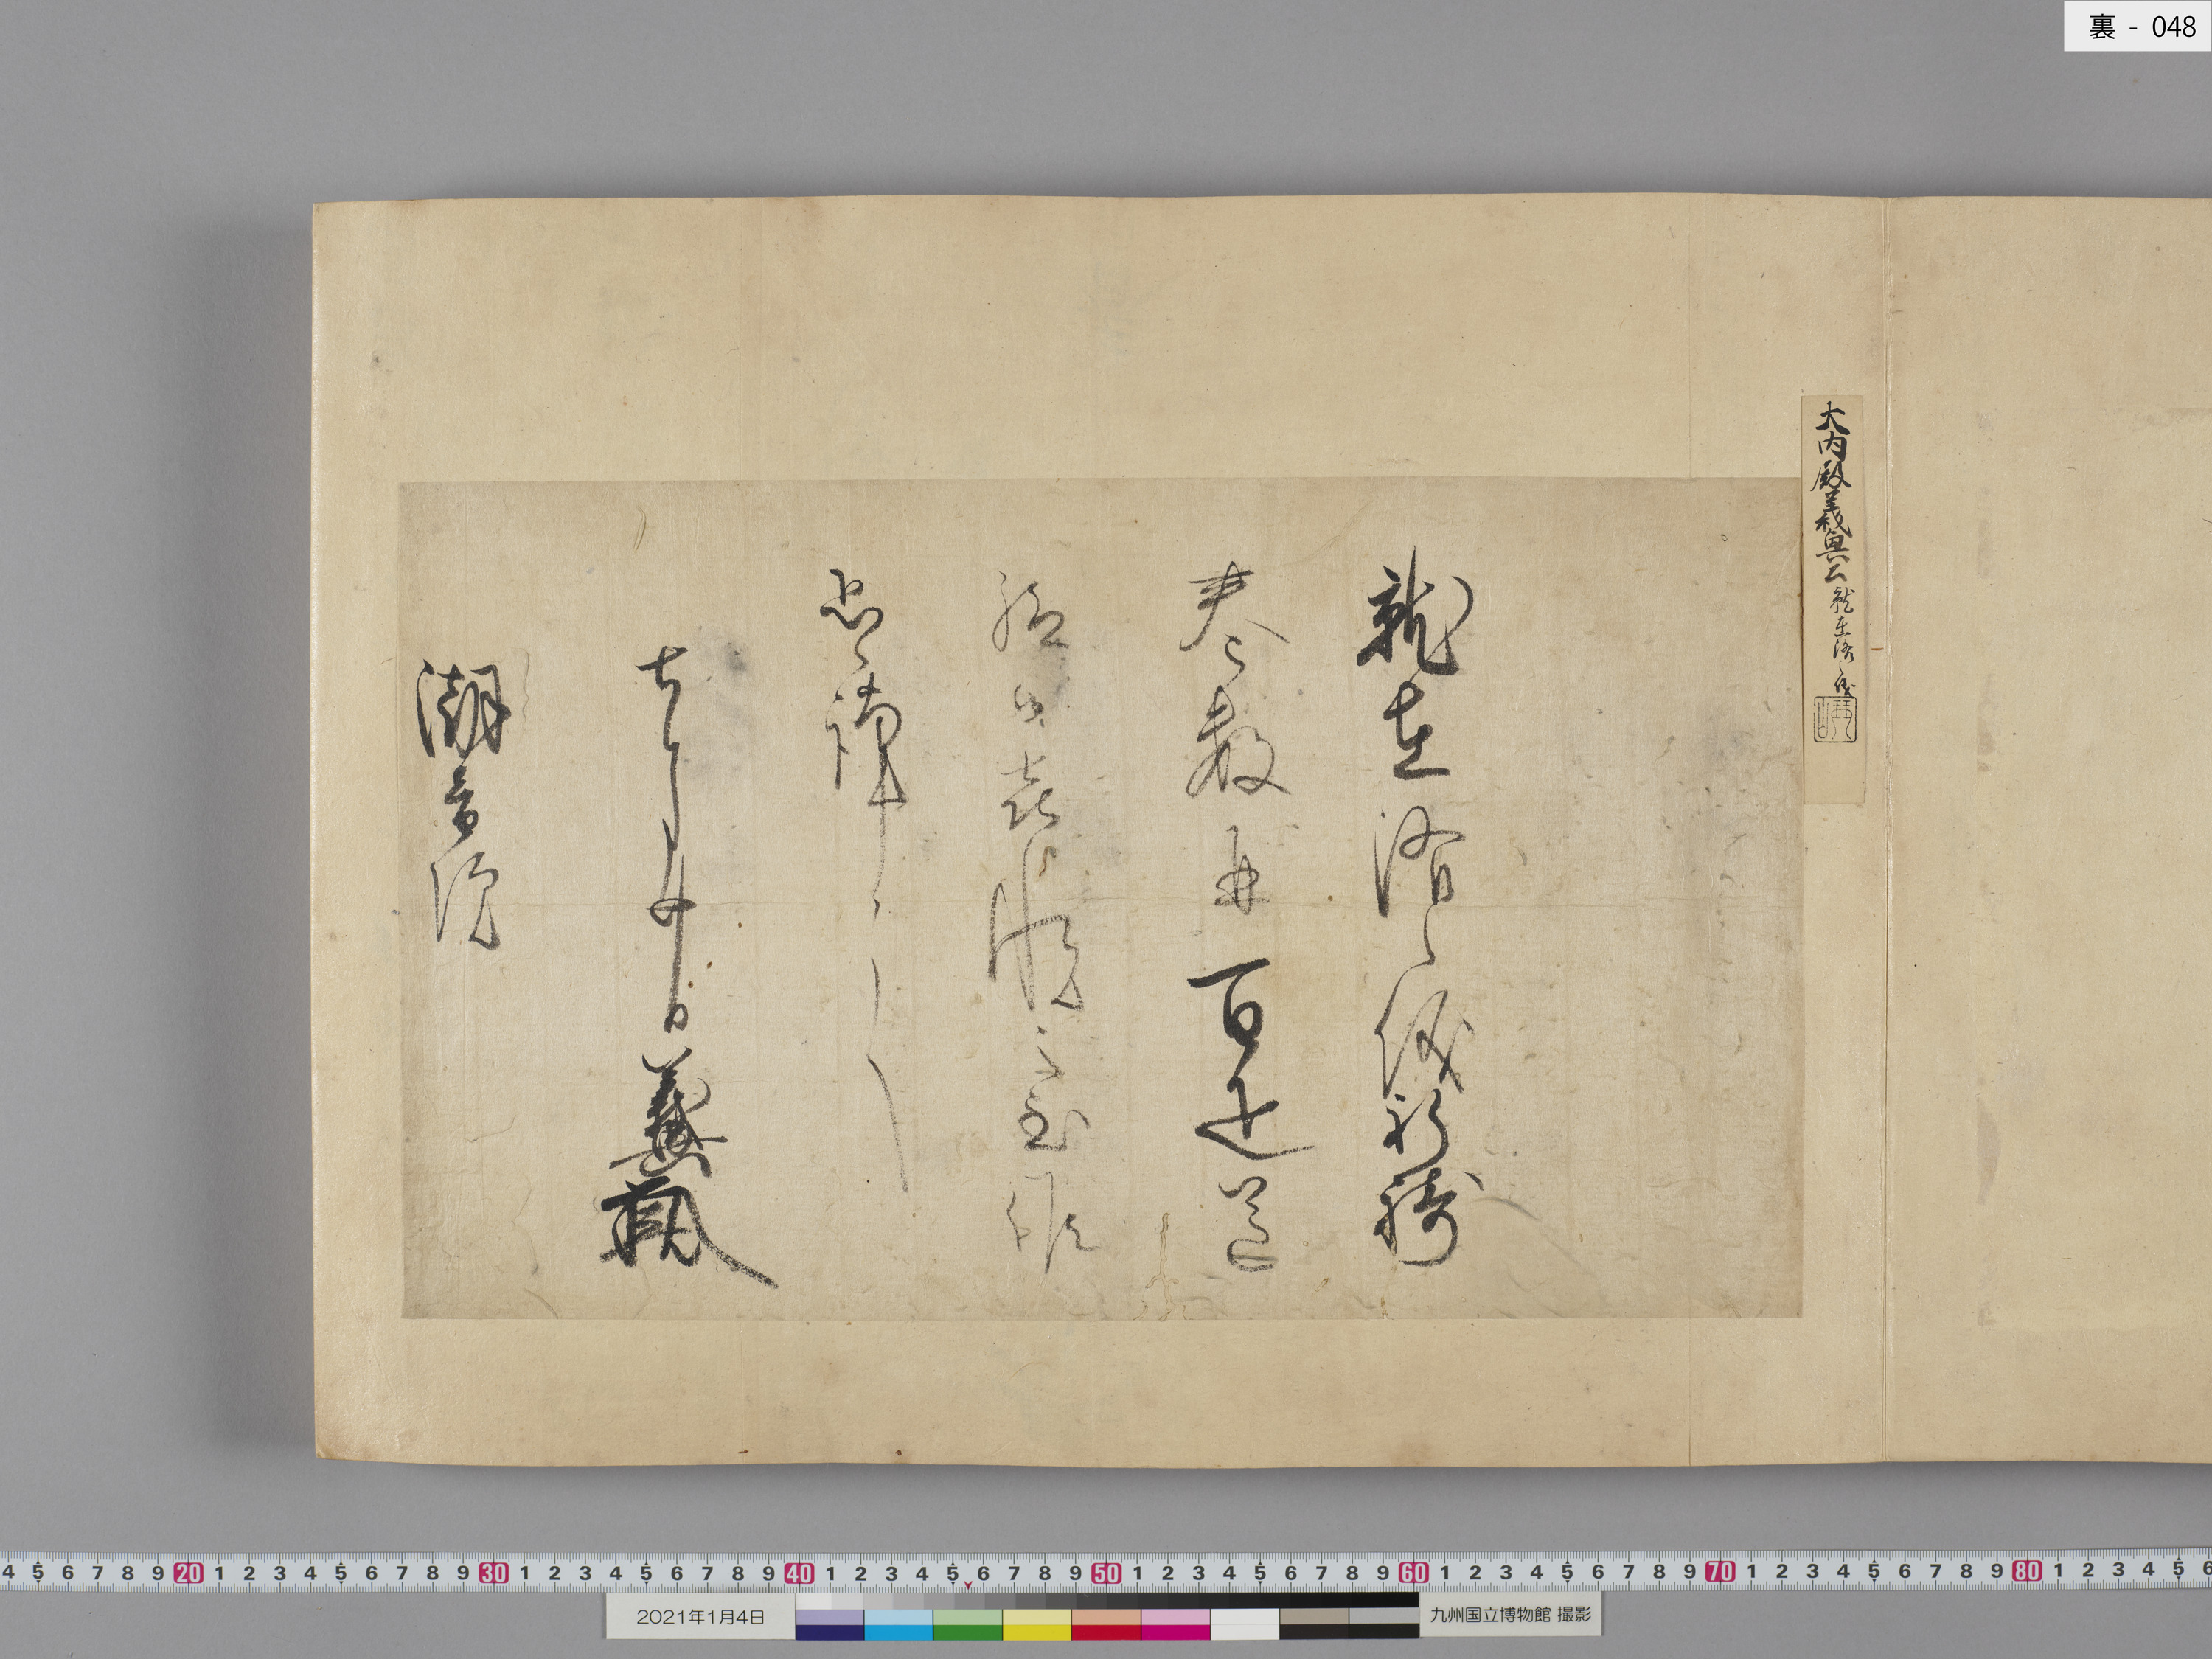 裏 - 048
大内殿義興公就在洛之儀
就在洛之儀祈祷
巻数并百疋送
給候喜悦之至候
恐々謹言
七月廿日 義興
潮音院
4 5 6 7 8 9 20 1 2 3 4 5 6 7 8 9 30 1 2 3 4 5 6 7 8 9 40 1 2 3 4 5 6 7 8 9 50 1 2 3 4 5 6 7 8 9 60 1 2 3 4 5 6 7 8 9 70 1 2 3 4 5 6 7 8 9 80 1 2 3 4 5 6
2021年1月4日
九州国立博物館 撮影